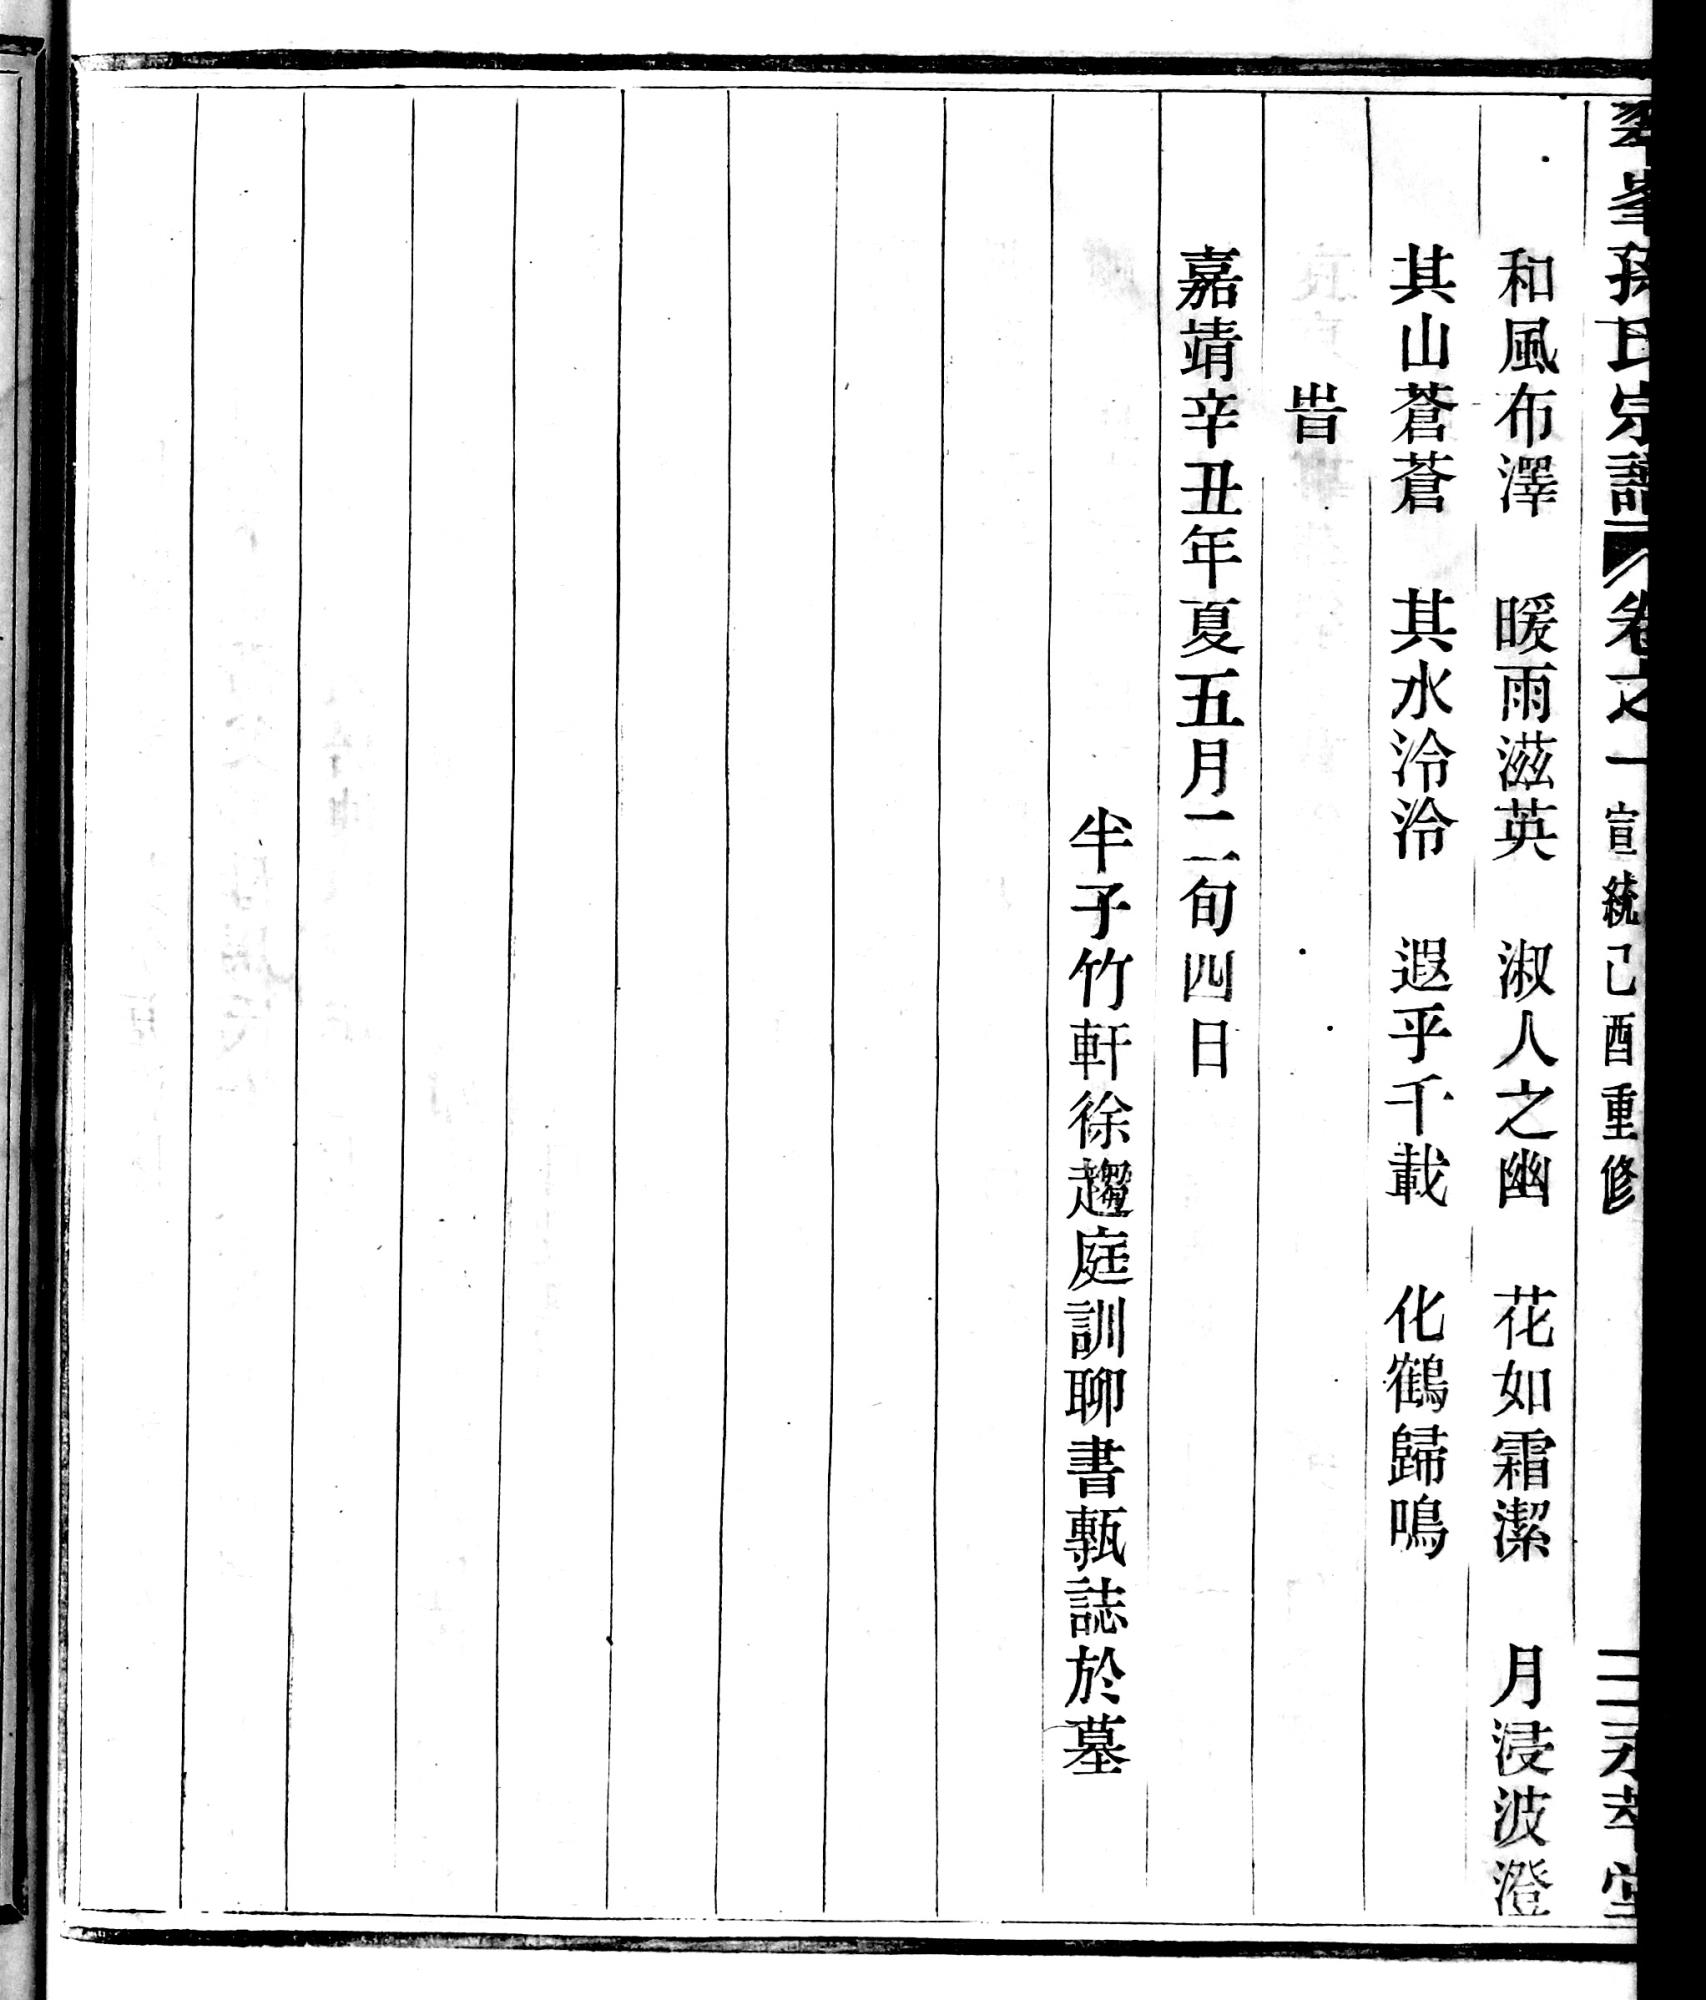 峯孫氏宗譜 卷之一 宣統己酉重修 堂
和風布澤 暖雨滋英 淑人之幽 花如霜潔 月浸波澄
其山蒼蒼 其水泠泠 遐乎千載 化鶴歸鳴
旹
嘉靖辛丑年夏五月二旬四日
半子竹軒徐趨庭訓聊書甎誌於墓